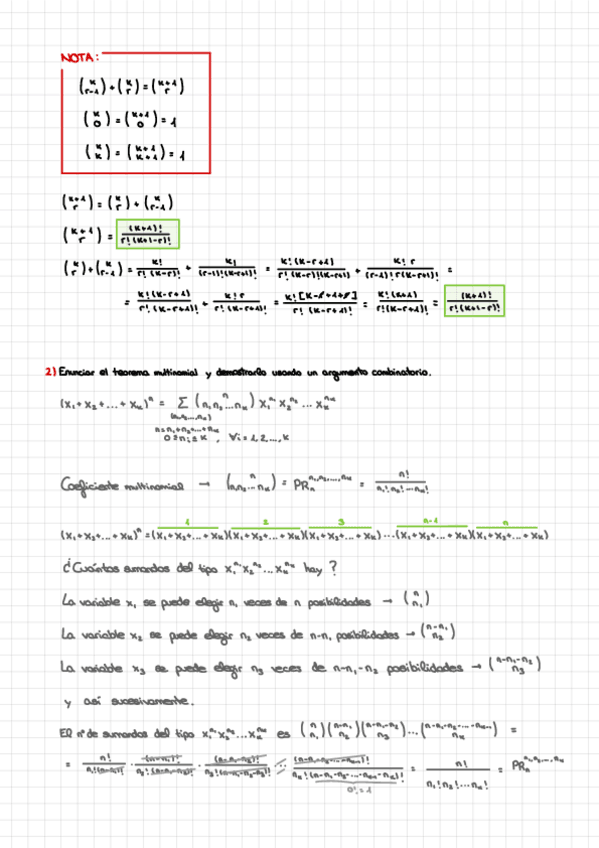 NOTA:
(k r-1) + (k r) = (k+1 r)
(k 0) = (k+1 0) = 1
(k k) = (k+1 k+1) = 1
(k+1 r) = (k r) + (k r-1)
(k+1 r) = (k+1)! / r!(k+1-r)!
(k r) + (k r-1) = k! / r!(k-r)! + k! / (r-1)!(k-r+1)! = k!(k-r+1) / r!(k-r)!(k-r+1) + k! r / (r-1)! r(k-r+1)! =
= k!(k-r+1) / r!(k-r+1)! + k! r / r!(k-r+1)! = k![k-r+1+r] / r!(k-r+1)! = k!(k+1) / r!(k-r+1)! = (k+1)! / r!(k+1-r)!
2) Enunciar el teorema multinomial y demostrarlo usando un argumento combinatorio.
(x₁+x₂+...+xₖ)ⁿ = Σ (n n₁n₂...nₖ) x₁ⁿ¹ x₂ⁿ² ... xₖⁿᵏ
(n₁,n₂,...,nₖ)
n=n₁+n₂+...+nₖ
0≤nᵢ≤k , ∀i=1,2...,k
Coeficiente multinomial → (n n₁n₂...nₖ) = PRₙⁿ¹,ⁿ²,...,ⁿᵏ = n! / n₁!n₂!...nₖ!
1 2 3 n-1 n
(x₁+x₂+...+xₖ)ⁿ = (x₁+x₂+...+xₖ)(x₁+x₂+...+xₖ)(x₁+x₂+...+xₖ)...(x₁+x₂+...+xₖ)(x₁+x₂+...+xₖ)
¿Cuántos sumandos del tipo x₁ⁿ¹x₂ⁿ²...xₖⁿᵏ hay ?
La variable x₁ se puede elegir n₁ veces de n posibilidades → (n n₁)
La variable x₂ se puede elegir n₂ veces de n-n₁ posibilidades → (n-n₁ n₂)
La variable x₃ se puede elegir n₃ veces de n-n₁-n₂ posibilidades → (n-n₁-n₂ n₃)
y así sucesivamente.
El nº de sumandos del tipo x₁ⁿ¹x₂ⁿ²x₃ⁿ³...xₖⁿᵏ es (n n₁)(n-n₁ n₂)(n-n₁-n₂ n₃)...(n-n₁-n₂-...-nₖ₋₁ nₖ) =
= n! / n₁!(n-n₁)! · (n-n₁)! / n₂!(n-n₁-n₂)! · (n-n₁-n₂)! / n₃!(n-n₁-n₂-n₃)! ... (n-n₁-n₂-...-nₖ₋₁)! / nₖ!(n-n₁-n₂-...-nₖ₋₁-nₖ)! = n! / n₁!n₂!...nₖ! = PRₙⁿ¹,ⁿ²,...,ⁿᵏ
0!=1